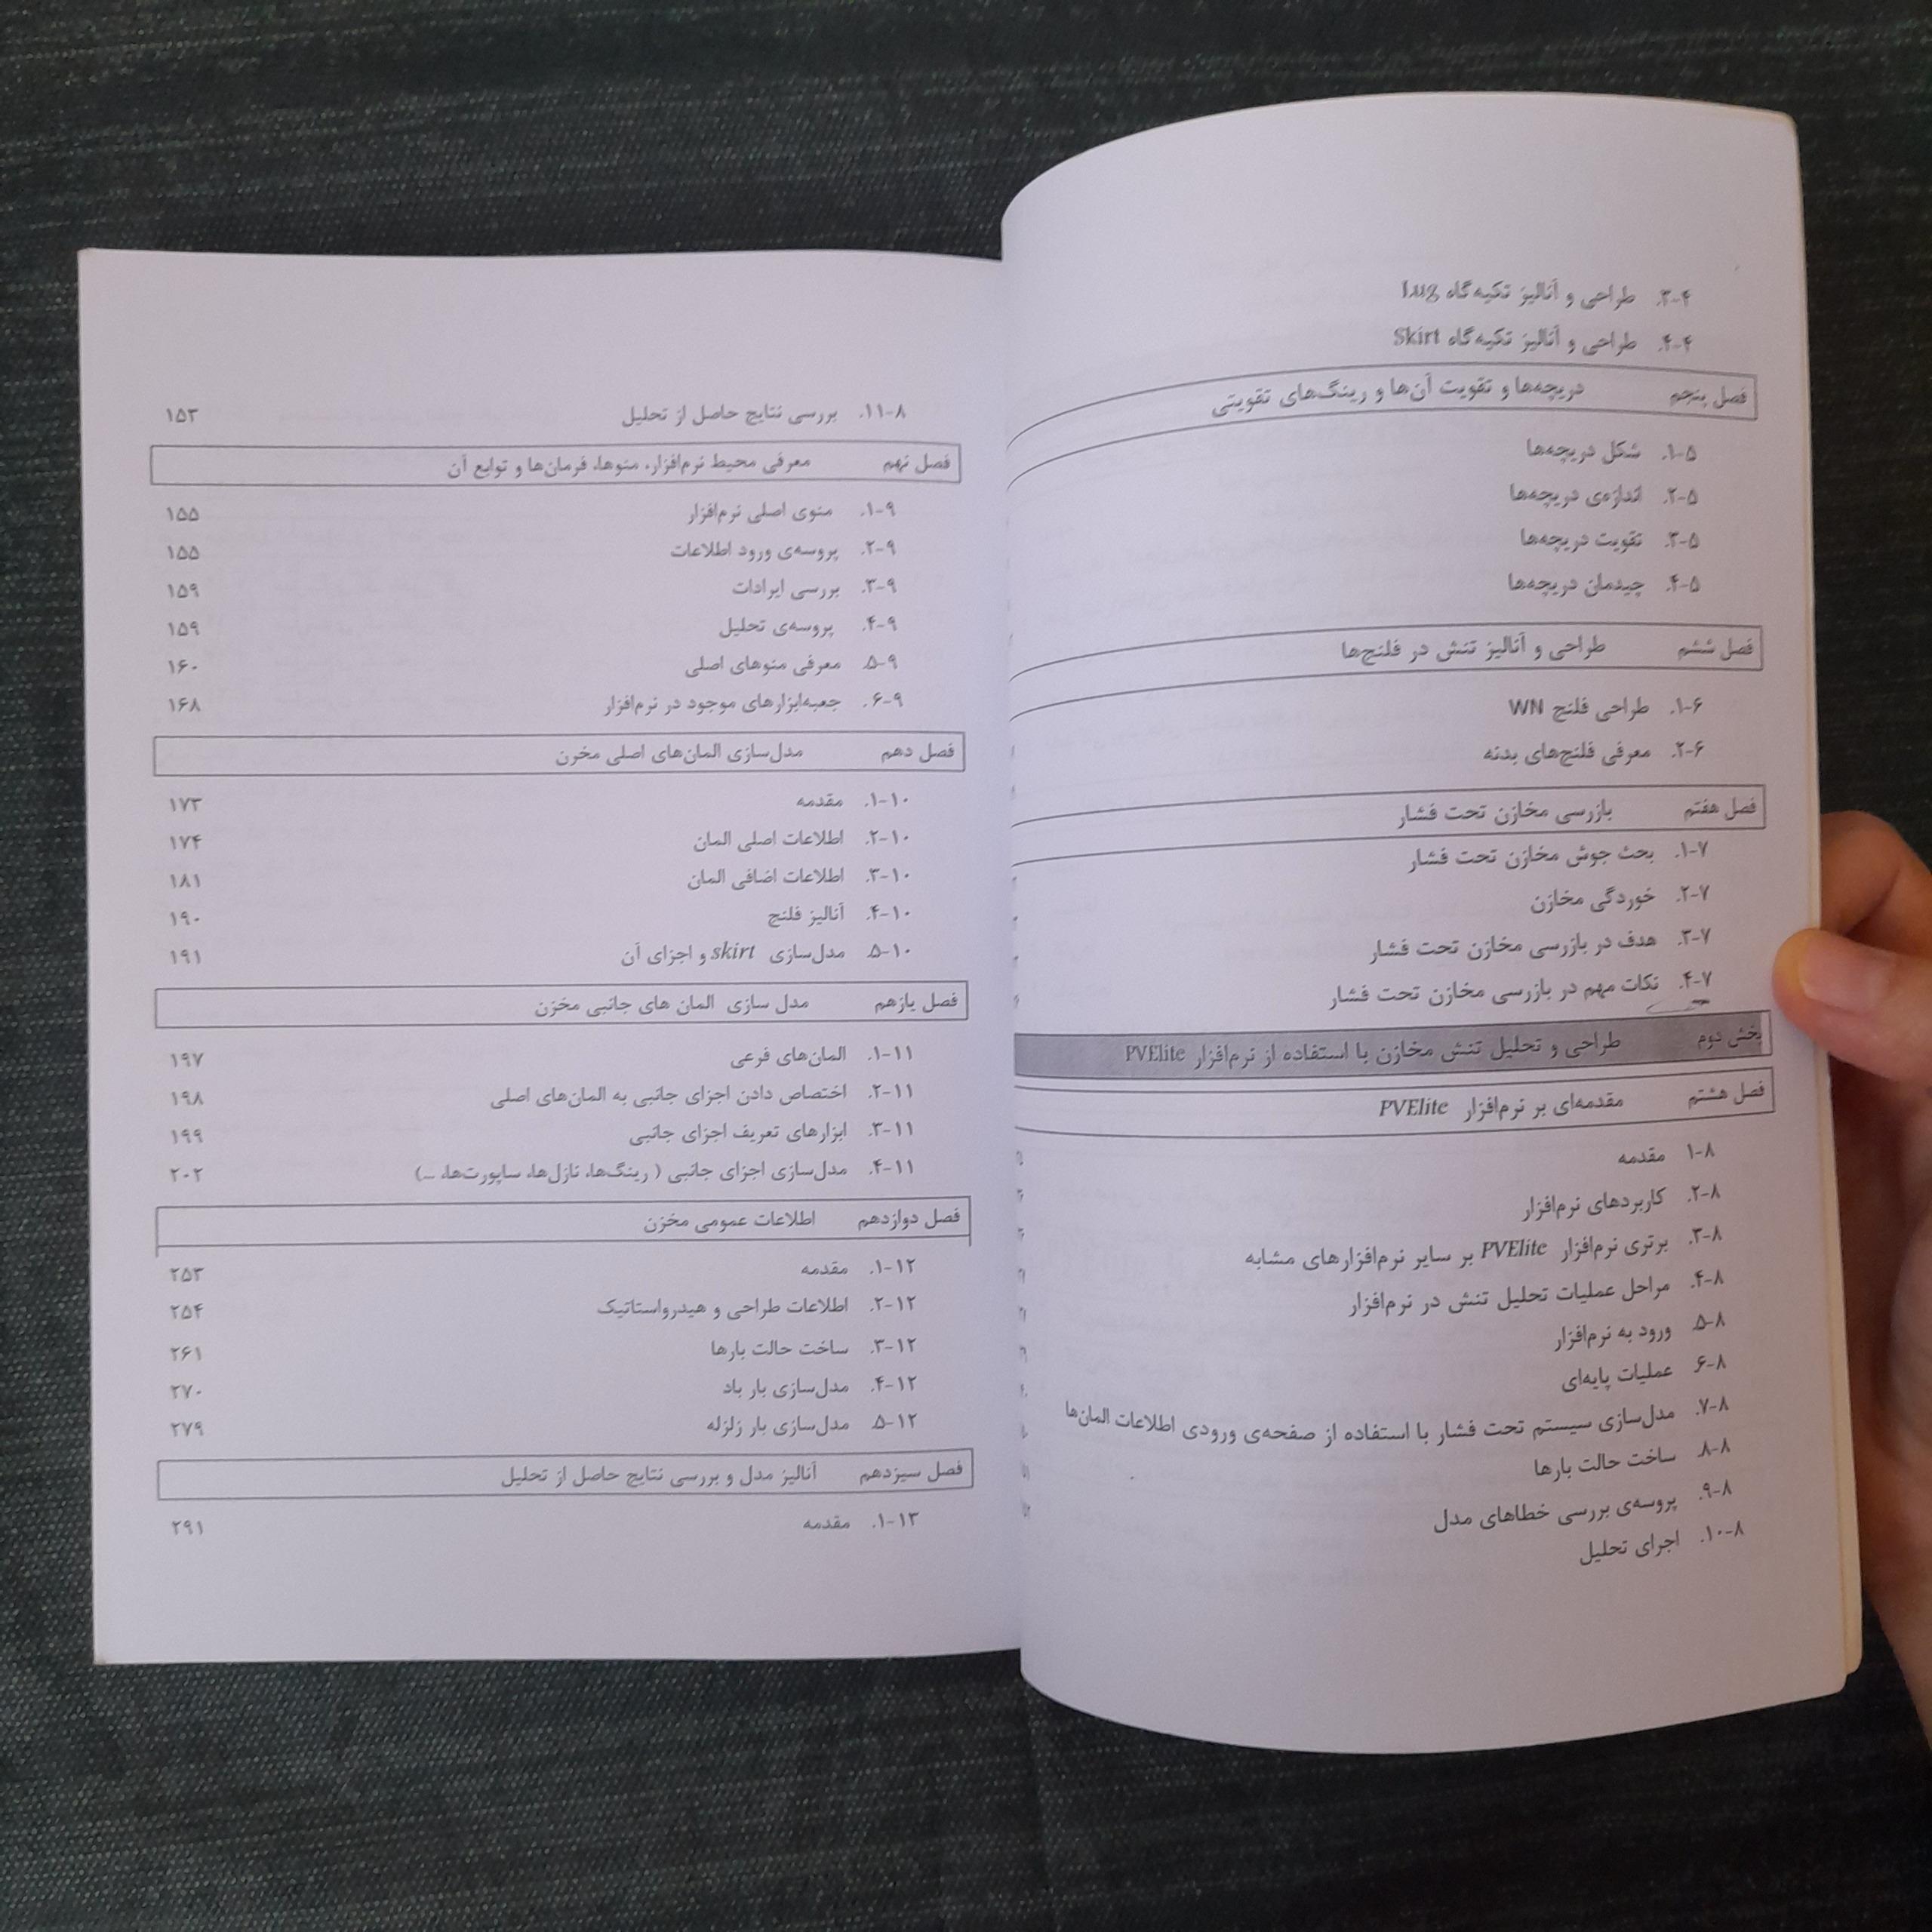 ۳-۴. طراحی و آنالیز تکیه‌گاه Lug
۴-۴. طراحی و آنالیز تکیه‌گاه Skirt
فصل پنجم دریچه‌ها و تقویت آن‌ها و رینگ‌های تقویتی
۱-۵. شکل دریچه‌ها
۲-۵. اندازه‌ی دریچه‌ها
۳-۵. تقویت دریچه‌ها
۴-۵. چیدمان دریچه‌ها
فصل ششم طراحی و آنالیز تنش در فلنج‌ها
۱-۶. طراحی فلنج WN
۲-۶. معرفی فلنج‌های بدنه
فصل هفتم بازرسی مخازن تحت فشار
۱-۷. بحث جوش مخازن تحت فشار
۲-۷. خوردگی مخازن
۳-۷. هدف در بازرسی مخازن تحت فشار
۴-۷. نکات مهم در بازرسی مخازن تحت فشار
بخش دوم طراحی و تحلیل تنش مخازن با استفاده از نرم‌افزار PVElite
فصل هشتم مقدمه‌ای بر نرم‌افزار PVElite
۱-۸ مقدمه
۲-۸. کاربردهای نرم‌افزار
۳-۸. برتری نرم‌افزار PVElite بر سایر نرم‌افزارهای مشابه
۴-۸. مراحل عملیات تحلیل تنش در نرم‌افزار
۵-۸. ورود به نرم‌افزار
۶-۸ عملیات پایه‌ای
۷-۸. مدل‌سازی سیستم تحت فشار با استفاده از صفحه‌ی ورودی اطلاعات المان‌ها
۸-۸. ساخت حالت بارها
۹-۸. پروسه‌ی بررسی خطاهای مدل
۱۰-۸. اجرای تحلیل
۱۱-۸. بررسی نتایج حاصل از تحلیل ۱۵۳
فصل نهم معرفی محیط نرم‌افزار، منوها، فرمان‌ها و توابع آن
۱-۹. منوی اصلی نرم‌افزار ۱۵۵
۲-۹. پروسه‌ی ورود اطلاعات ۱۵۵
۳-۹. بررسی ایرادات ۱۵۹
۴-۹. پروسه‌ی تحلیل ۱۵۹
۵-۹. معرفی منوهای اصلی ۱۶۰
۶-۹. جعبه‌ابزارهای موجود در نرم‌افزار ۱۶۸
فصل دهم مدل‌سازی المان‌های اصلی مخزن
۱-۱۰. مقدمه ۱۷۳
۲-۱۰. اطلاعات اصلی المان ۱۷۴
۳-۱۰. اطلاعات اضافی المان ۱۸۱
۴-۱۰. آنالیز فلنج ۱۹۰
۵-۱۰. مدل‌سازی skirt و اجزای آن ۱۹۱
فصل یازهم مدل سازی المان های جانبی مخزن
۱-۱۱. المان‌های فرعی ۱۹۷
۲-۱۱. اختصاص دادن اجزای جانبی به المان‌های اصلی ۱۹۸
۳-۱۱. ابزارهای تعریف اجزای جانبی ۱۹۹
۴-۱۱. مدل‌سازی اجزای جانبی ( رینگ‌ها، نازل‌ها، ساپورت‌ها، ...) ۲۰۲
فصل دوازدهم اطلاعات عمومی مخزن
۱-۱۲. مقدمه ۲۵۳
۲-۱۲. اطلاعات طراحی و هیدرواستاتیک ۲۵۴
۳-۱۲. ساخت حالت بارها ۲۶۱
۴-۱۲. مدل‌سازی بار باد ۲۷۰
۵-۱۲. مدل‌سازی بار زلزله ۲۷۹
فصل سیزدهم آنالیز مدل و بررسی نتایج حاصل از تحلیل
۱-۱۳. مقدمه ۲۹۱